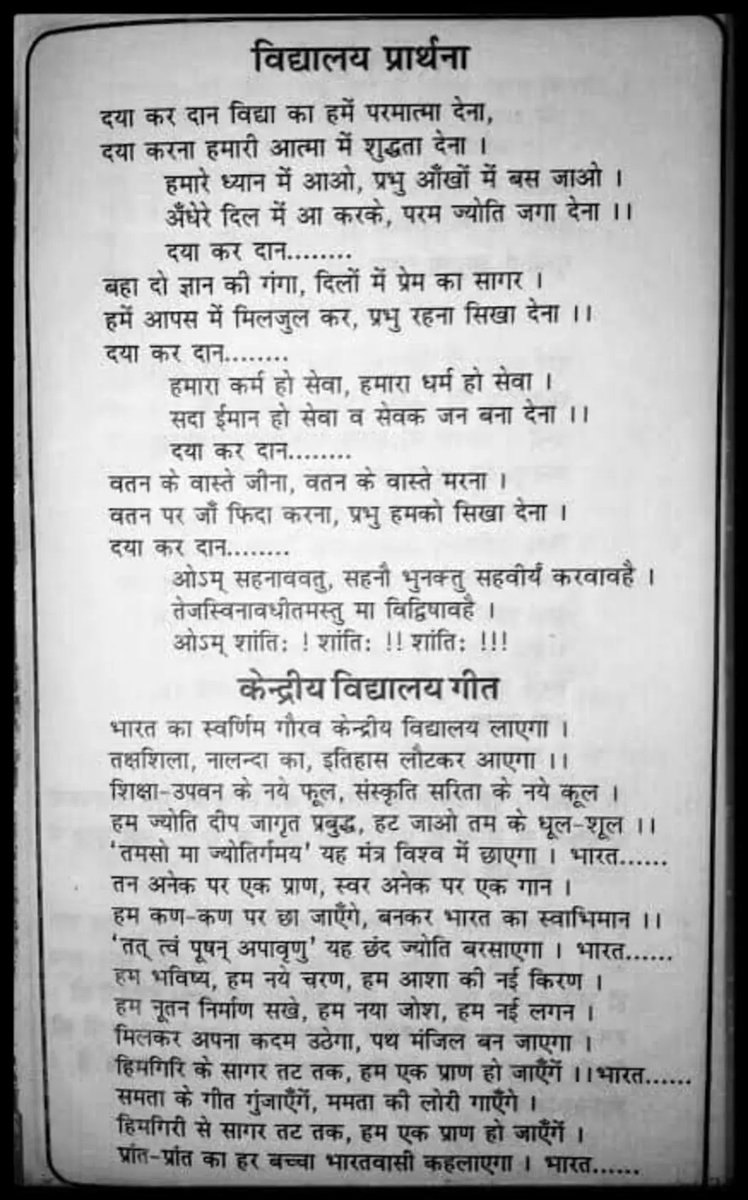 विद्यालय प्रार्थना
दया कर दान विद्या का हमें परमात्मा देना,
दया करना हमारी आत्मा में शुद्धता देना ।
हमारे ध्यान में आओ, प्रभु आँखों में बस जाओ ।
अँधेरे दिल में आ करके, परम ज्योति जगा देना ।।
दया कर दान........
बहा दो ज्ञान की गंगा, दिलों में प्रेम का सागर ।
हमें आपस में मिलजुल कर, प्रभु रहना सिखा देना ।।
दया कर दान........
हमारा कर्म हो सेवा, हमारा धर्म हो सेवा ।
सदा ईमान हो सेवा व सेवक जन बना देना ।।
दया कर दान........
वतन के वास्ते जीना, वतन के वास्ते मरना ।
वतन पर जाँ फिदा करना, प्रभु हमको सिखा देना ।
दया कर दान........
ओऽम् सहनाववतु, सहनौ भुनक्तु सहवीर्यं करवावहै ।
तेजस्विनावधीतमस्तु मा विद्विषावहै ।
ओऽम् शांतिः ! शांतिः !! शांतिः !!!
केन्द्रीय विद्यालय गीत
भारत का स्वर्णिम गौरव केन्द्रीय विद्यालय लाएगा ।
तक्षशिला, नालन्दा का, इतिहास लौटकर आएगा ।।
शिक्षा-उपवन के नये फूल, संस्कृति सरिता के नये कूल ।
हम ज्योति दीप जागृत प्रबुद्ध, हट जाओ तम के धूल-शूल ।।
‘तमसो मा ज्योतिर्गमय’ यह मंत्र विश्व में छाएगा । भारत......
तन अनेक पर एक प्राण, स्वर अनेक पर एक गान ।
हम कण-कण पर छा जाएँगे, बनकर भारत का स्वाभिमान ।।
‘तत् त्वं पूषन् अपावृणु’ यह छंद ज्योति बरसाएगा । भारत......
हम भविष्य, हम नये चरण, हम आशा की नई किरण ।
हम नूतन निर्माण सखे, हम नया जोश, हम नई लगन ।
मिलकर अपना कदम उठेगा, पथ मंजिल बन जाएगा ।
हिमगिरि के सागर तट तक, हम एक प्राण हो जाएँगें ।।भारत......
समता के गीत गुंजाएँगें, ममता की लोरी गाएँगे ।
हिमगिरी से सागर तट तक, हम एक प्राण हो जाएँगें ।
प्रांत-प्रांत का हर बच्चा भारतवासी कहलाएगा । भारत......